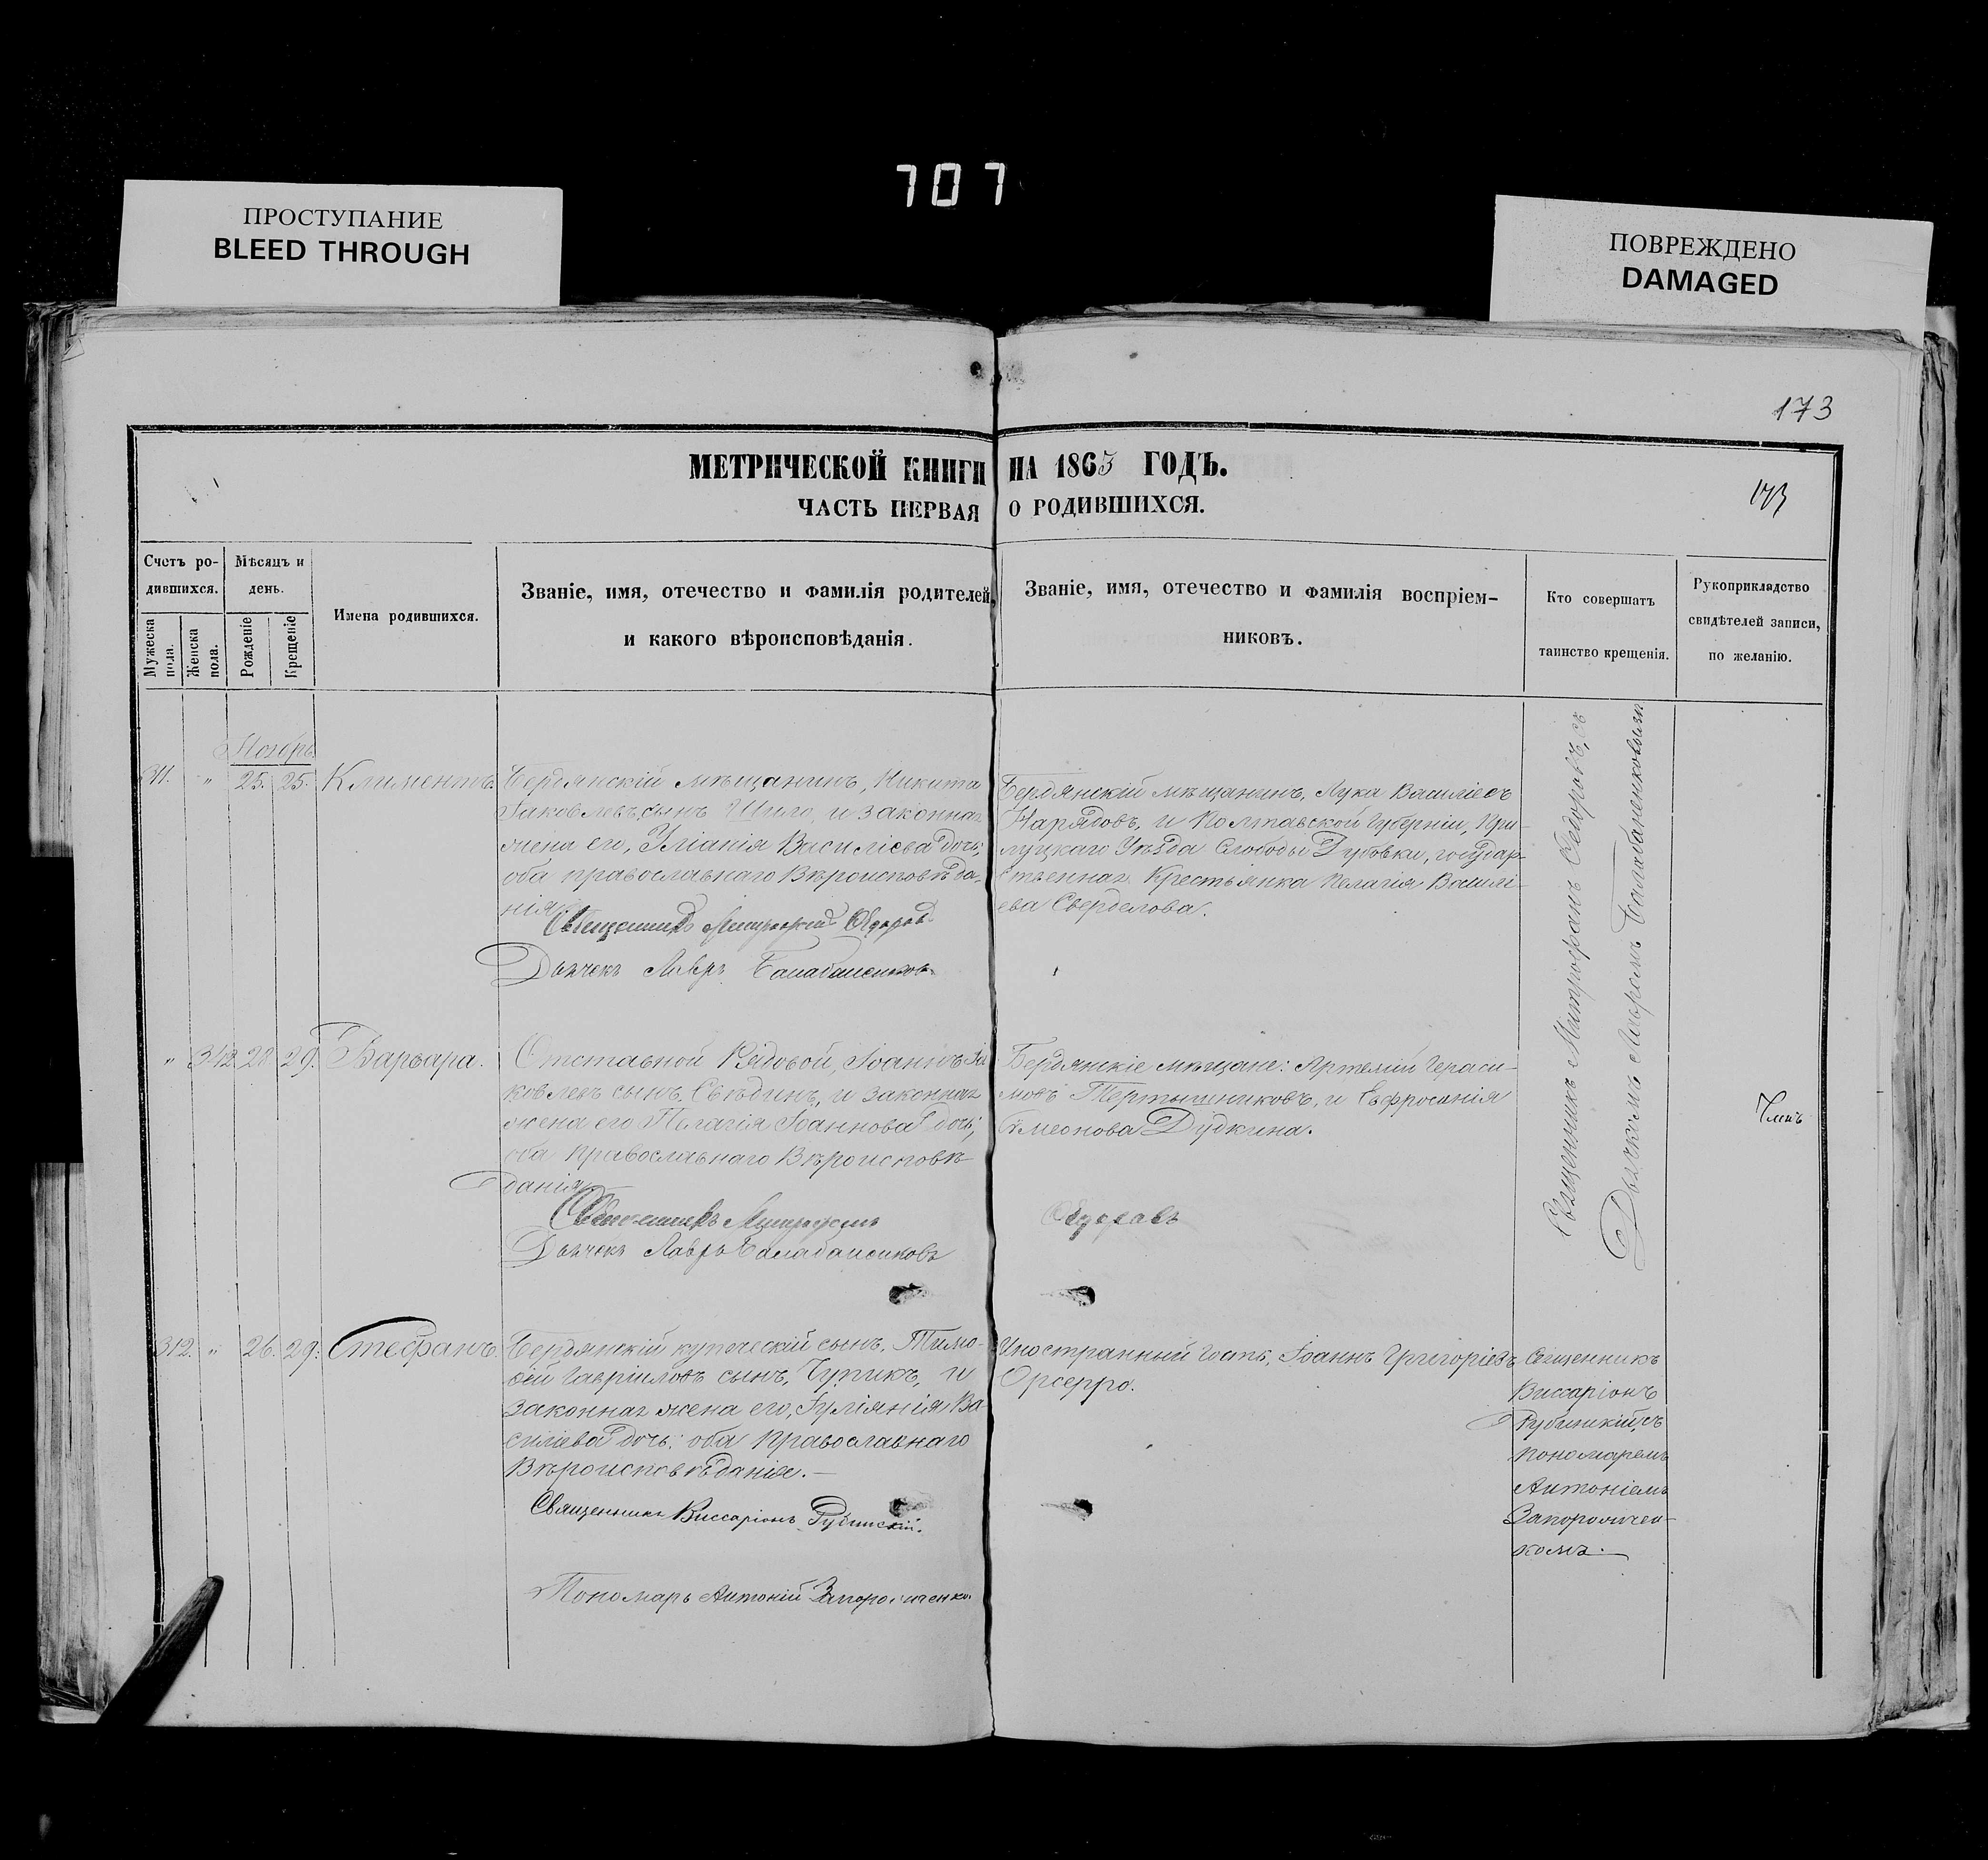 707
ПРОСТУПАНИЕ
BLEED THROUGH
ПОВРЕЖДЕНО
DAMAGED
173
МЕТРИЧЕСКОЙ КНИГИ НА 1863 ГОДЪ.
ЧАСТЬ ПЕРВАЯ О РОДИВШИХСЯ.
173
Счетъ ро-
дившихся.
Мужеска
пола.
Женска
пола.
Мѣсяцъ и
день.
Рожденіе
Крещеніе
Имена родившихся.
Званіе, имя, отечество и фамилія родителей,
и какого вѣроисповѣданія.
Званіе, имя, отечество и фамилія воспріем-
никовъ.
Кто совершатъ
таинство крещенія.
Рукоприкладство
свидѣтелей записи,
по желанію.
Ноябрь
311. " 25. 25. Климентъ.
Бердянскій мѣщанинъ, Никита
Іаковлевъ сынъ Шило, и законная
жена его, Уліанія Василіева дочь;
оба православнаго Вѣроисповѣда-
нія
Священникъ Митрофанъ Ѳедоровъ
Дьячекъ Лавръ Балабаненковъ
Бердянскій мѣщанинъ, Лука Василіевъ
Нарядовъ, и Полтавской Губерніи, При-
луцкаго Уѣзда Слободы Дубовки, государ-
ственная Крестьянка Пелагія Васи­лі-
ева Сверделова.
Священникъ Митрофанъ Ѳедоровъ, съ
Дьячкомъ Лавромъ Балабаненковымъ
" 342 28 29. Варвара.
Отставной Рядовой, Іоаннъ Іа
ковлевъ сынъ, и законная
жена его Пелагія Іоаннова дочь;
оба православнаго Вѣроисповѣ-
данія
Священникъ Митрофанъ Ѳедоровъ
Дьячекъ Лавръ Балабаненковъ
Бердянскіе мѣщане: Артемій Гераси-
мовъ Тертышниковъ, и Евфросинія
Симеонова Дудкина.
312. " 26. 29. Стефанъ.
Бердянскій купеческій сынъ, Тимо-
ѳей Гавріиловъ сынъ, Чупикъ, и
законная жена его, Іуліянія Ва-
силіева дочь; оба православнаго
Вѣроисповѣданія.—
Священникъ Виссаріонъ Рубинскій.
Пономарь Антоній Запорожченко.
Иностранный гость, Іоаннъ Григоріевъ
Орсерро.
Священникъ
Виссаріонъ
Рубинскій, съ
Пономаремъ
Антоніемъ
Запорожчен-
комъ.